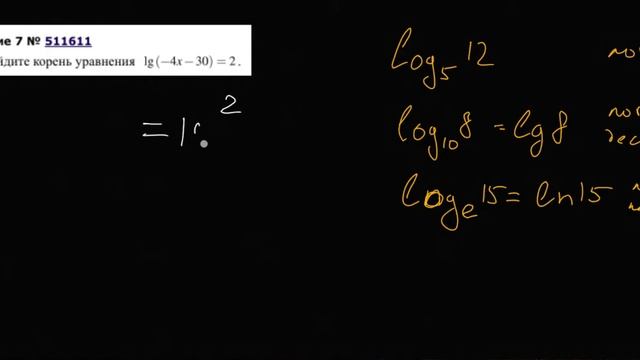 ие 7 № 511611
йдите корень уравнения lg (−4x − 30) = 2.
2
=
log₅ 12
log₁₀ 8 = lg 8
logₑ 15 = ln 15